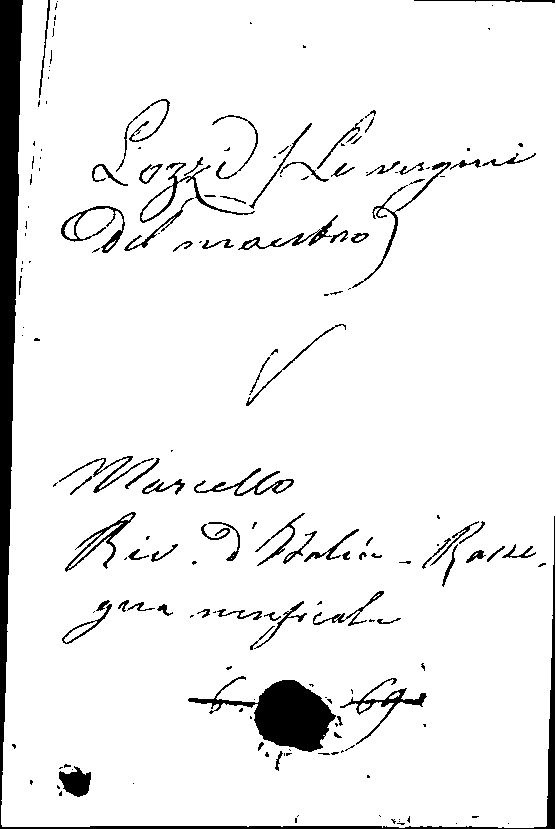 Lozzi / Le vergini
del maestro
Marcello
Riv. d'Italia - Rasse-
gna musicale